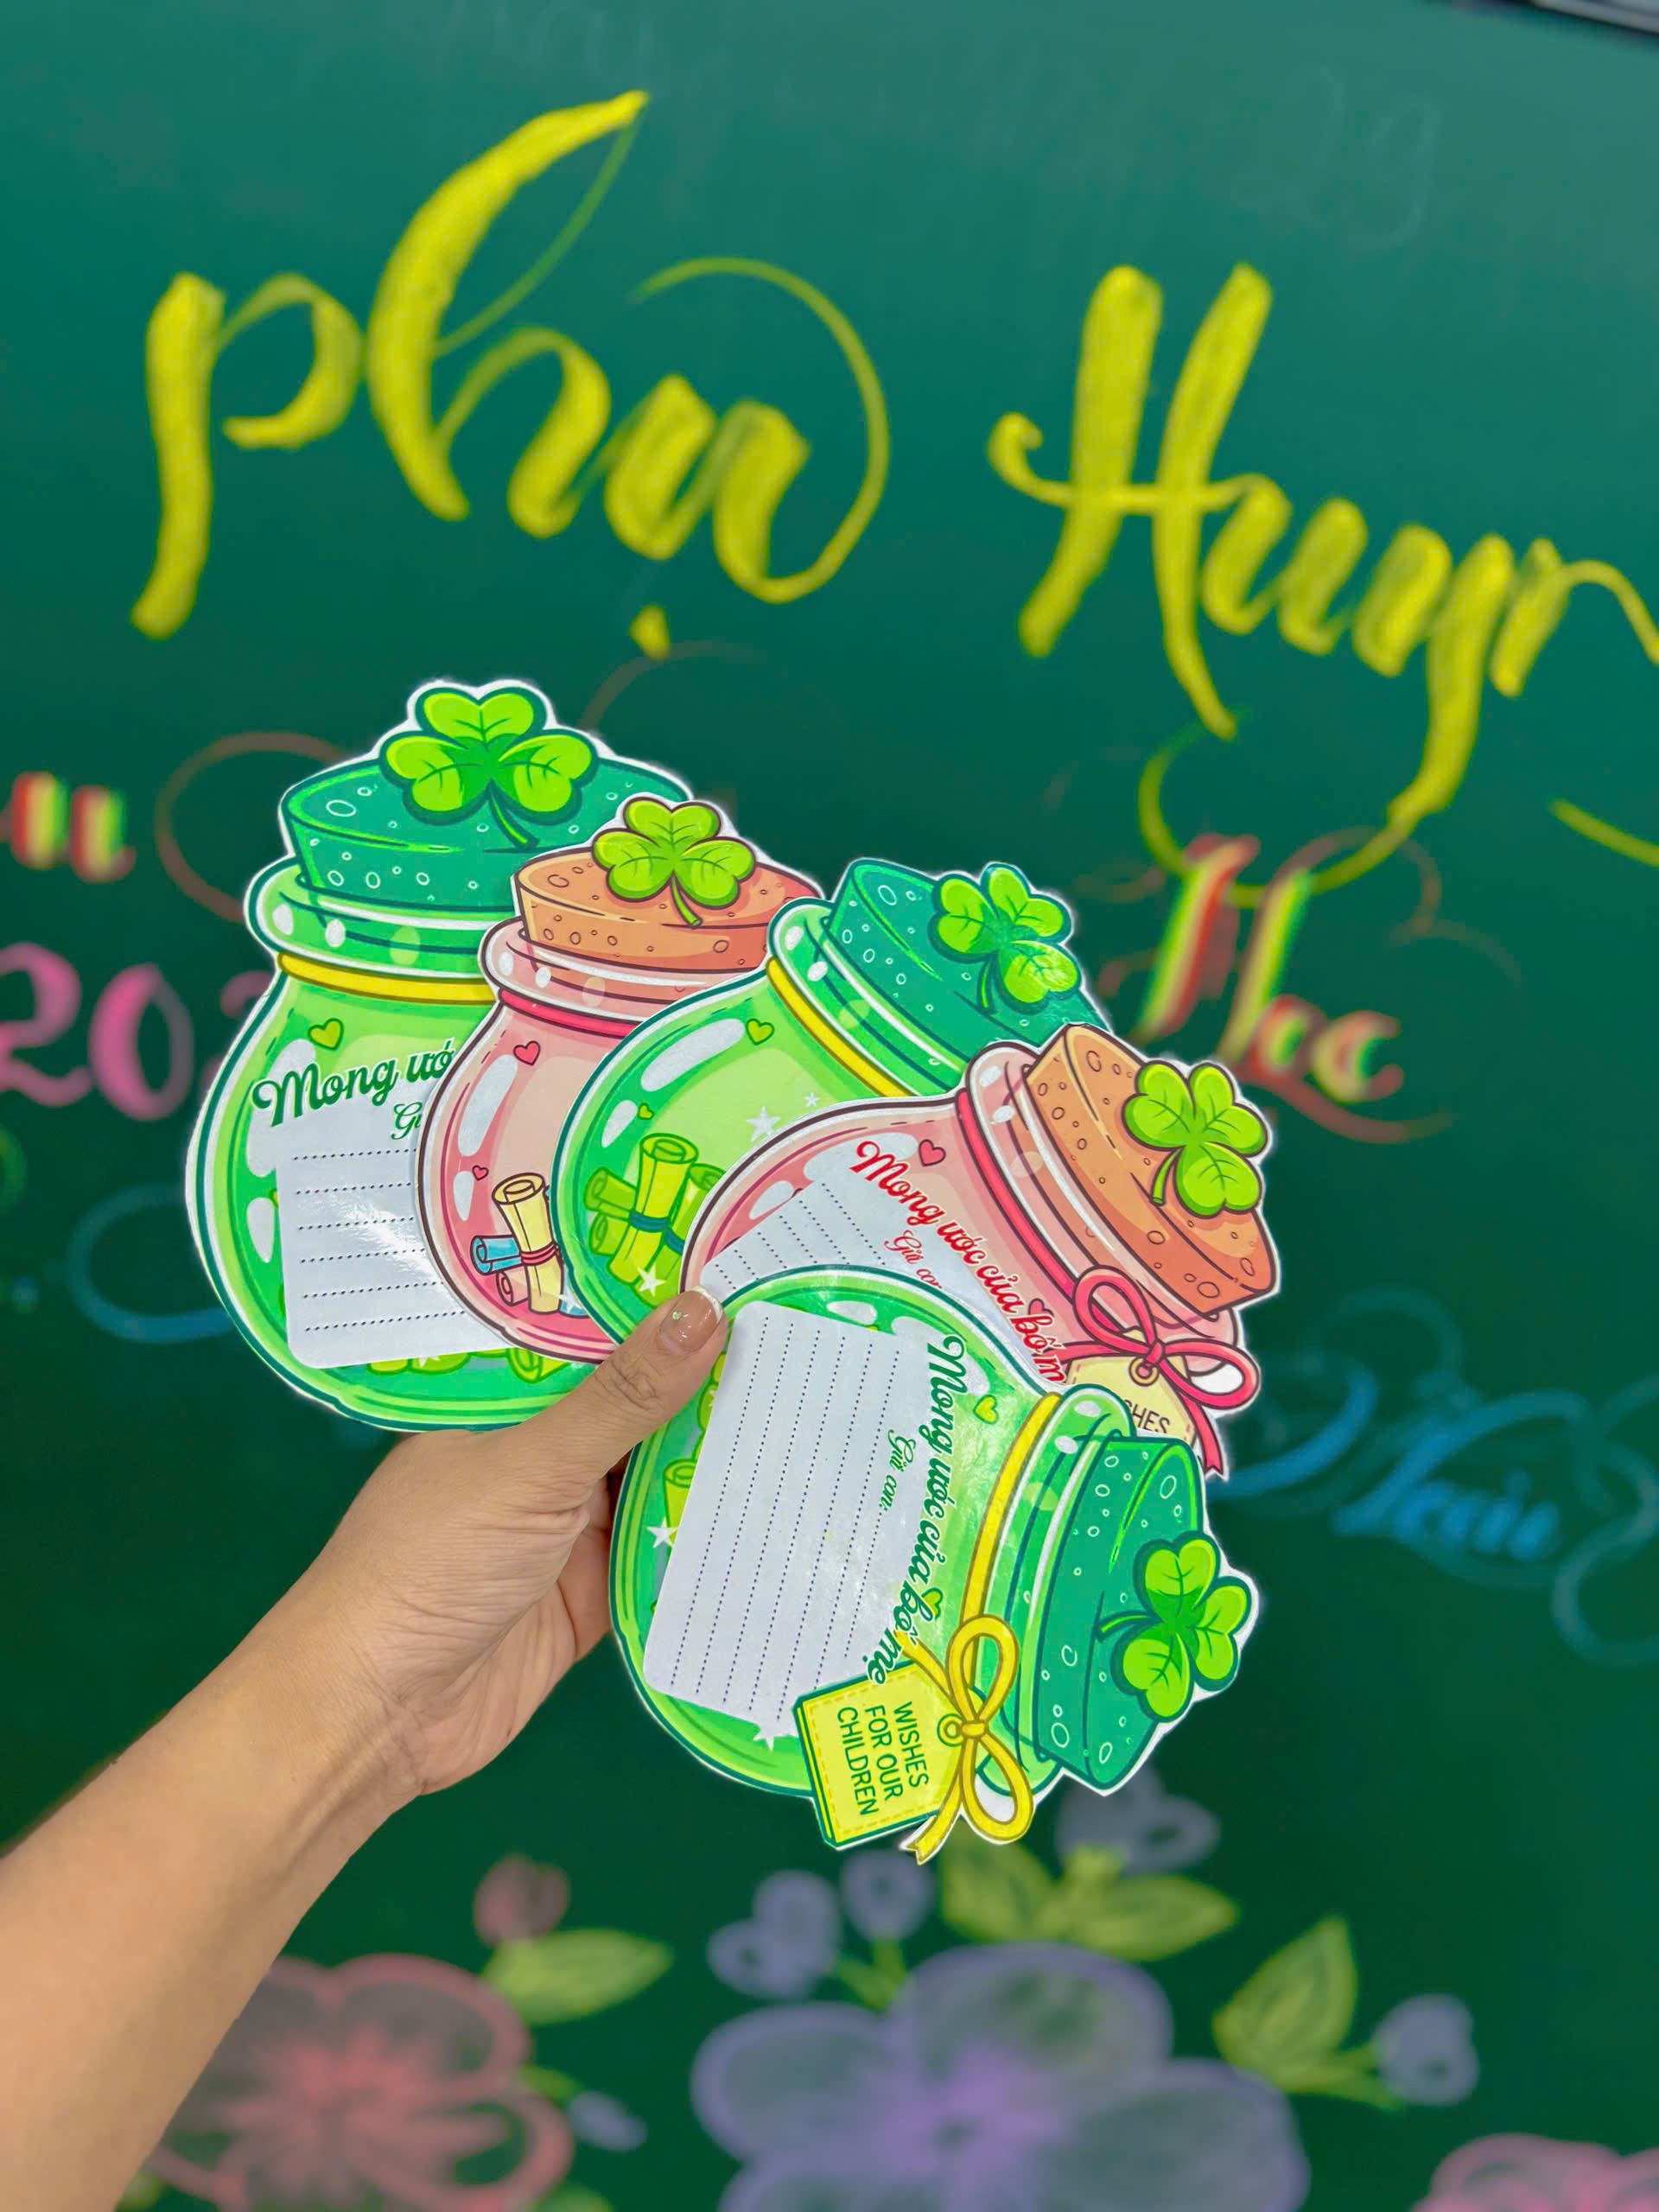 phụ Huyn
20
Học
Mong ướ
Gử
Mong ước của bố m
Gửi con
SHES
Mong ước của bố mẹ
Gửi con:
WISHES
FOR OUR
CHILDREN